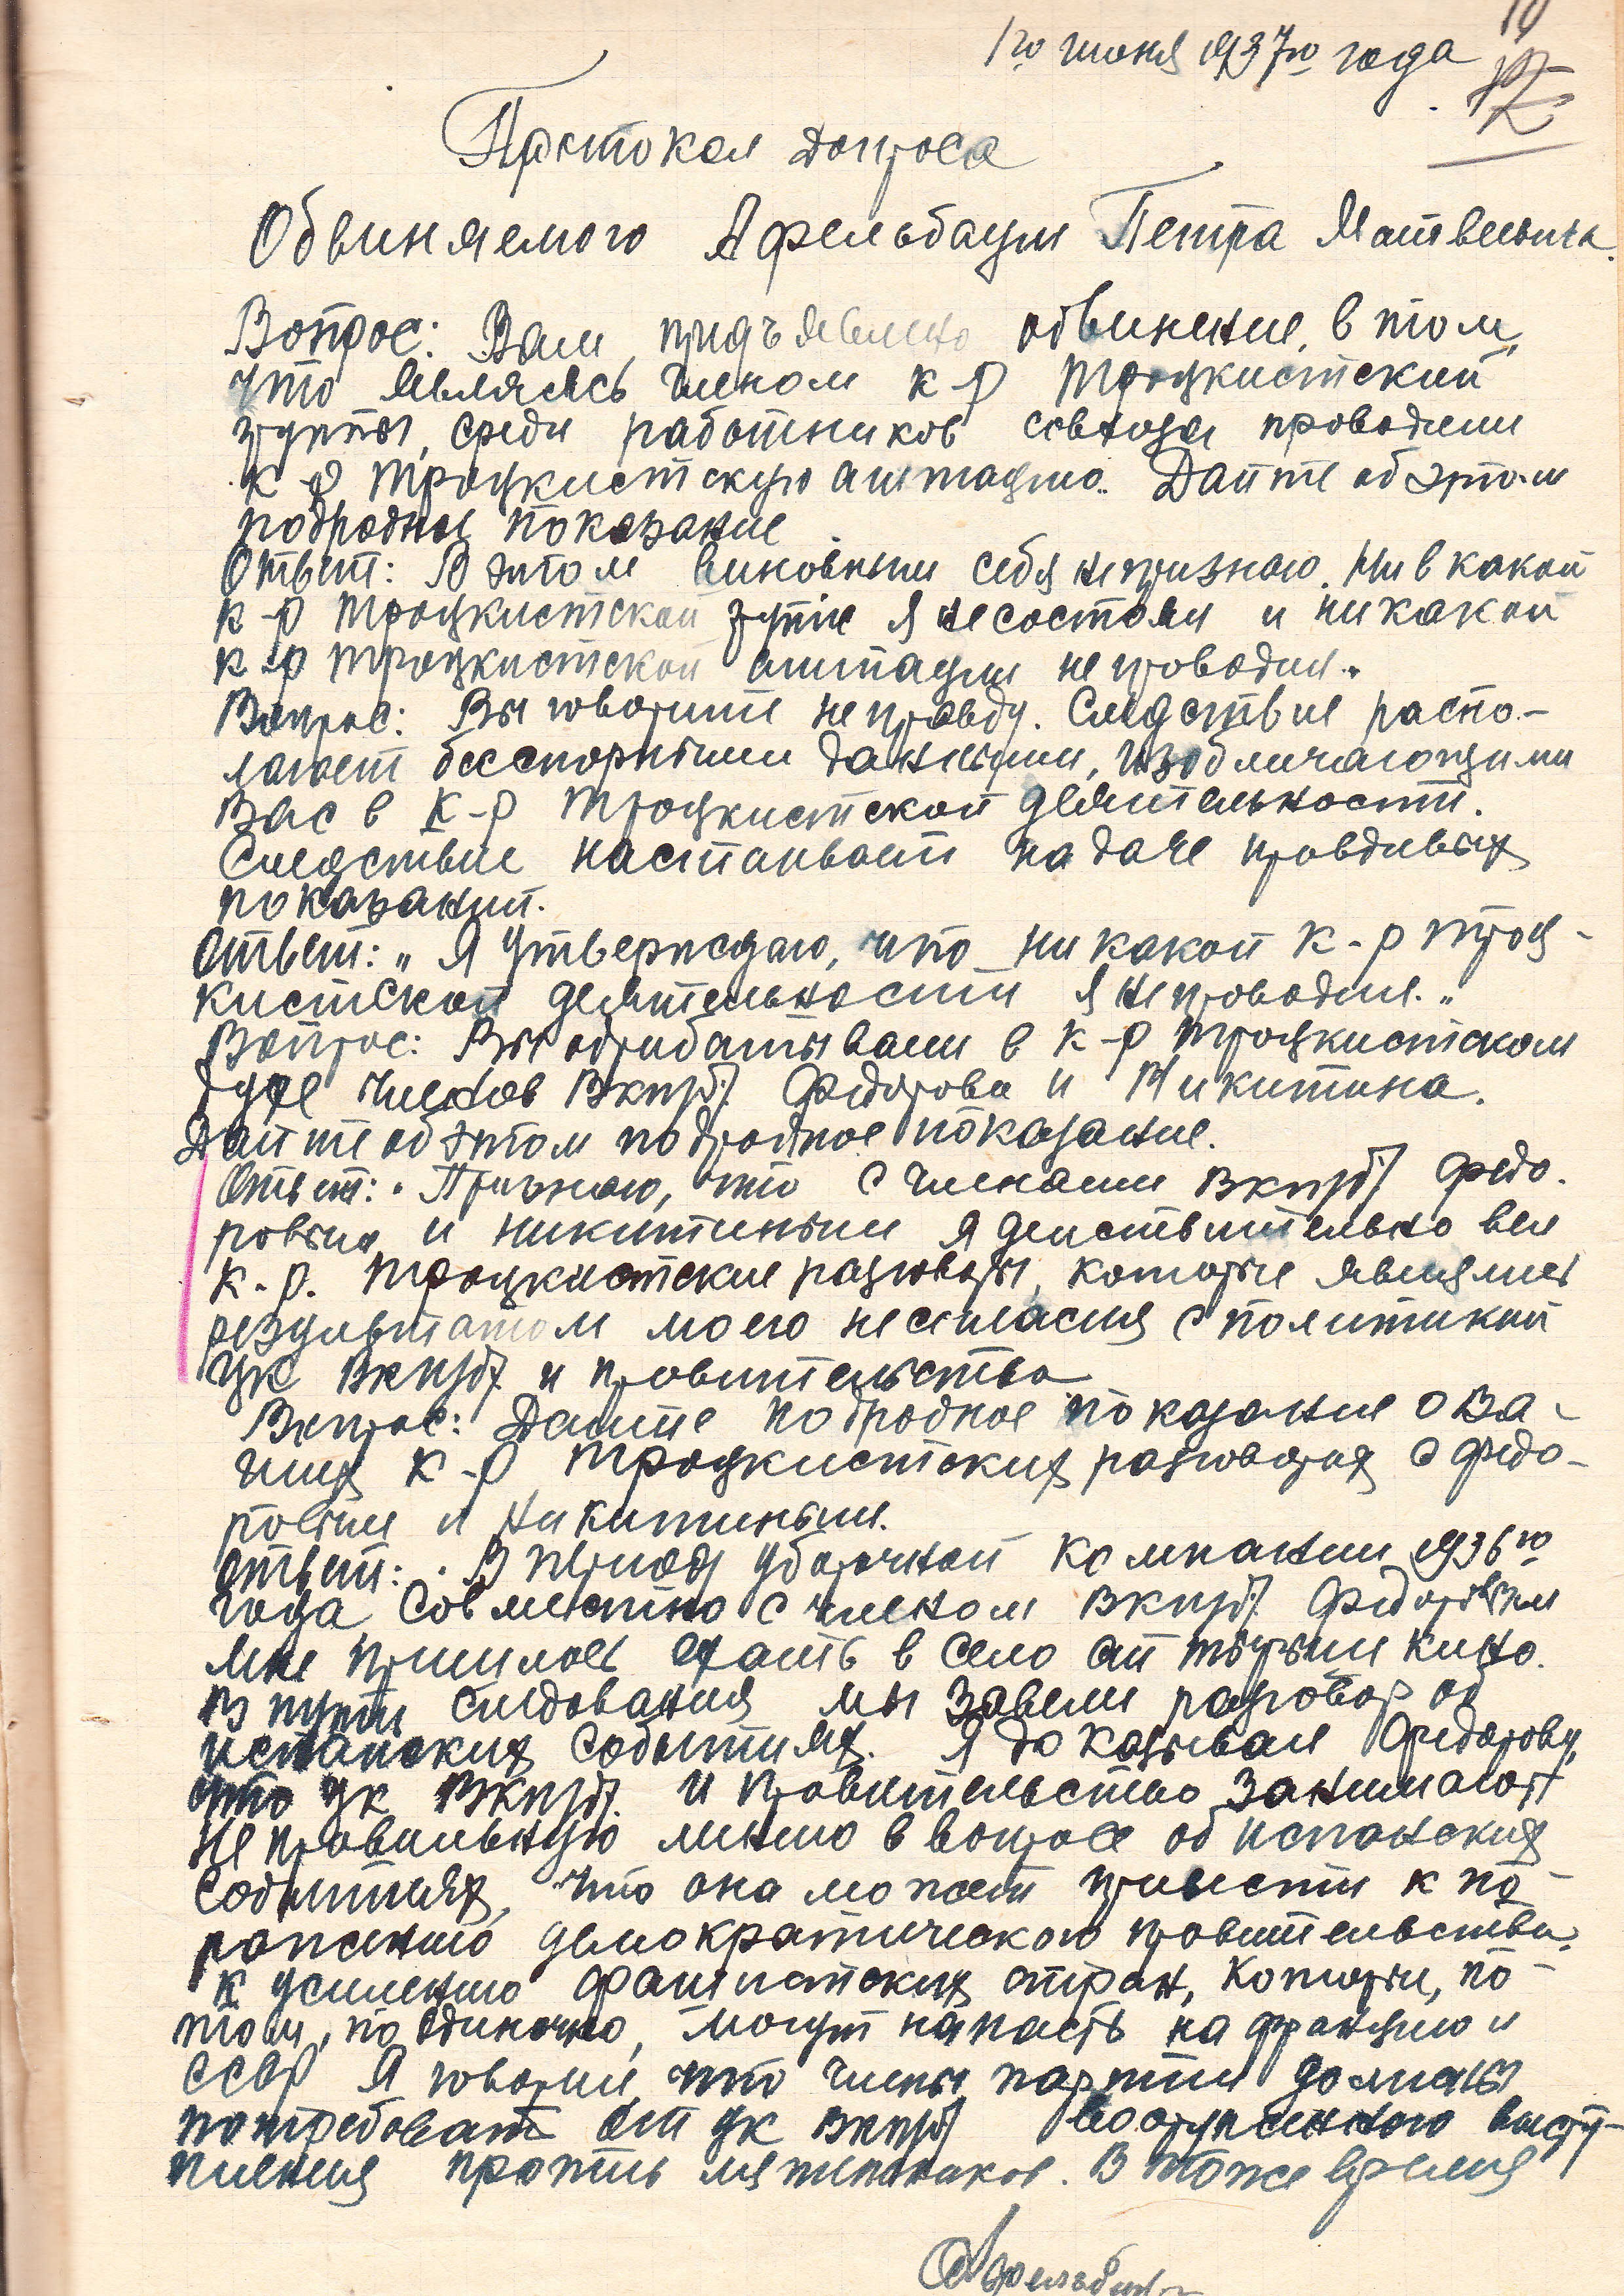 1го июня 1937го года
Протокол допроса
Обвиняемого Афельбаум Петра Матвеевича.
Вопрос: Вам предъявлено обвинение, в том,
что являясь членом к-р троцкистский
группы, среди работников совхоза проводили
к-р троцкистскую агитацию. Дайте об этом
подродные показание
Ответ: В этом виновным себя непризнаю. Ни в какой
к-р троцкистской групе я несостоял и никакой
к-р троцкистской агитации не проводил."
Вопрос: Вы говорите неправду. Следствие распо-
лагает бесспорными данными, изобличающими
Вас в к-р троцкистской деятельности.
Следствие настаивает на даче правдивых
показаний.
Ответ: "Я утверждаю, что никакой к-р троц-
кистской деятельности я непроводил."
Вопрос: Вы обрабатывали в к-р троцкистском
духе членов ВКП/б/ Федорова и Никитина.
Дайте об этом подродное показание.
Ответ: "Признаю, что с членами ВКП/б/ Федо-
ровым и Никитиным я действительно вел
к.-р. троцкистские разговоры, которые явились
результатом моего несогласия с политикой
ЦК ВКП/б/ и правительства
Вопрос: Дайте подродное показание о Ва-
ших к-р троцкистских разговорах с Федо-
ровым и Никитиным.
Ответ: "В период уборочной компании 1936го
года совместно с членом ВКП/б/ Федоровым
мне пришлось ехать в село
В пути следования мы завели разговор об
испанских событиях. Я доказывал Федорову,
что ЦК ВКП/б/ и правительство занимают
неправильную линию в вопросе об испанских
событиях, что она может привести к по-
ражению демократического правительства,
к усилению фашистских стран, которы, по-
том, по одиночно, могут напасть на францию и
СССР Я говорил, что члены партии должны
потребоват от ЦК ВКП/б/ вооруженного высту-
пления против мятежников. В тоже время
Афельбаум